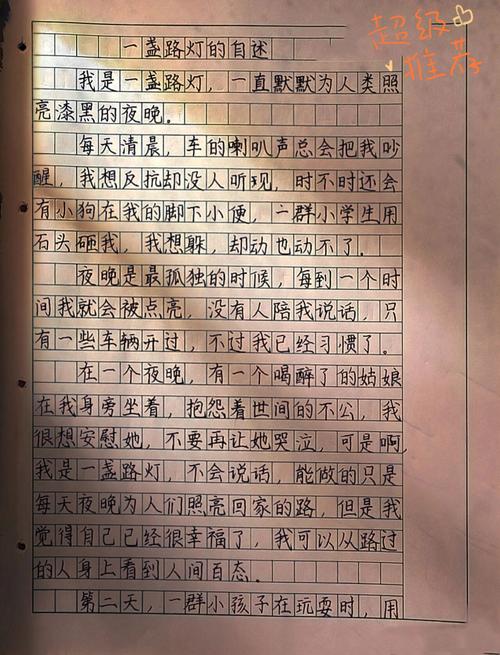 超级
推荐
一盏路灯的自述
我是一盏路灯，一直默默为人类照
亮漆黑的夜晚。
每天清晨，车的喇叭声总会把我吵
醒，我想反抗却没人听现，时不时还会
有小狗在我的脚下小便，一群小学生用
石头砸我，我想躲，却动也动不了。
夜晚是最孤独的时候，每到一个时
间我就会被点亮，没有人陪我说话，只
有一些车辆开过，不过我已经习惯了。
在一个夜晚，有一个喝醉了的姑娘
在我身旁坐着，抱怨着世间的不公，我
很想安慰她，不要再让她哭泣，可是啊，
我是一盏路灯，不会说话，能做的只是
每天夜晚为人们照亮回家的路，但是我
觉得自己已经很幸福了，我可以从路过
的人身上看到人间百态。
第二天，一群小孩子在玩耍时，用